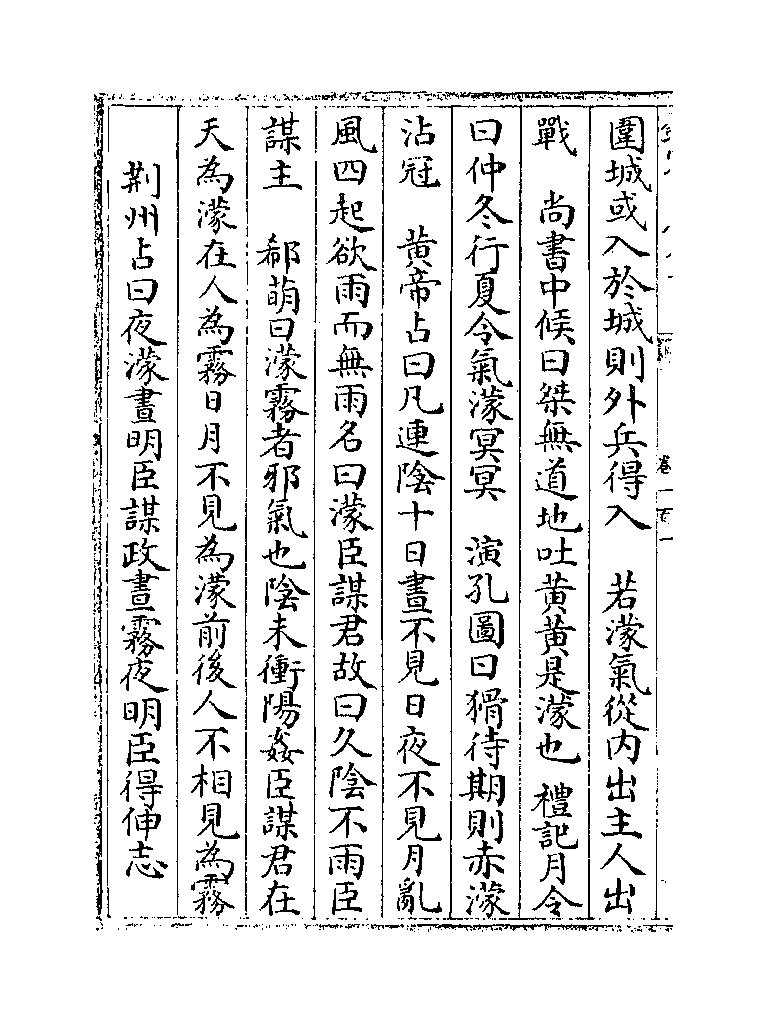 圍城或入於城則外兵得入　若濛氣從内出主人出
戰　尚書中候曰桀無道地吐黄黄是濛也　禮記月令
曰仲冬行夏令氣濛冥冥　演孔圖曰猾待期則赤濛
沾冠　黄帝占曰凡連陰十日晝不見日夜不見月亂
風四起欲雨而無雨名曰濛臣謀君故曰久陰不雨臣
謀主　郗萌曰濛霧者邪氣也陰未衝陽姦臣謀君在
天為濛在人為霧日月不見為濛前後人不相見為霧
荆州占曰夜濛晝明臣謀政晝霧夜明臣得伸志
卷一百一